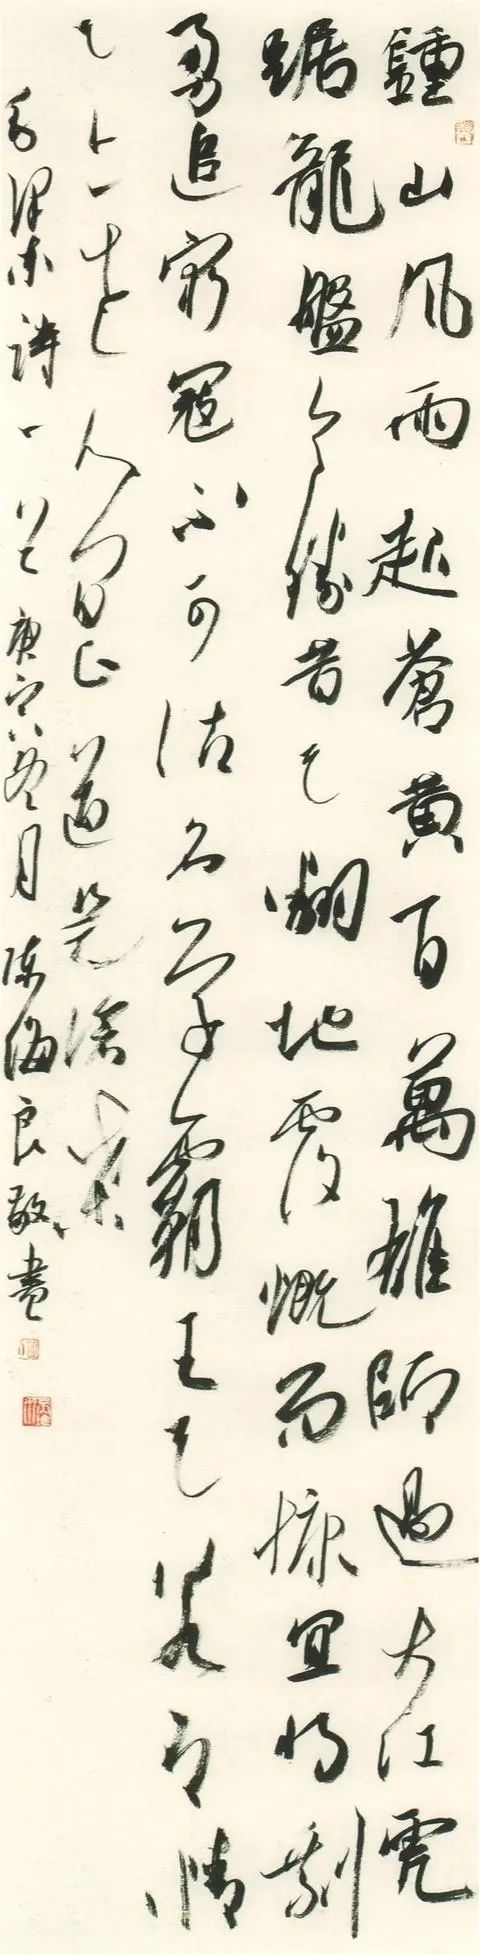 鍾山風雨起蒼黃百萬雄師過大江虎
踞龍盤今勝昔天翻地覆慨而慷宜將剩
勇追窮寇不可沽名學霸王天若有情
天亦老人間正道是滄桑
毛澤東詩一首庚寅冬月陳海良敬書